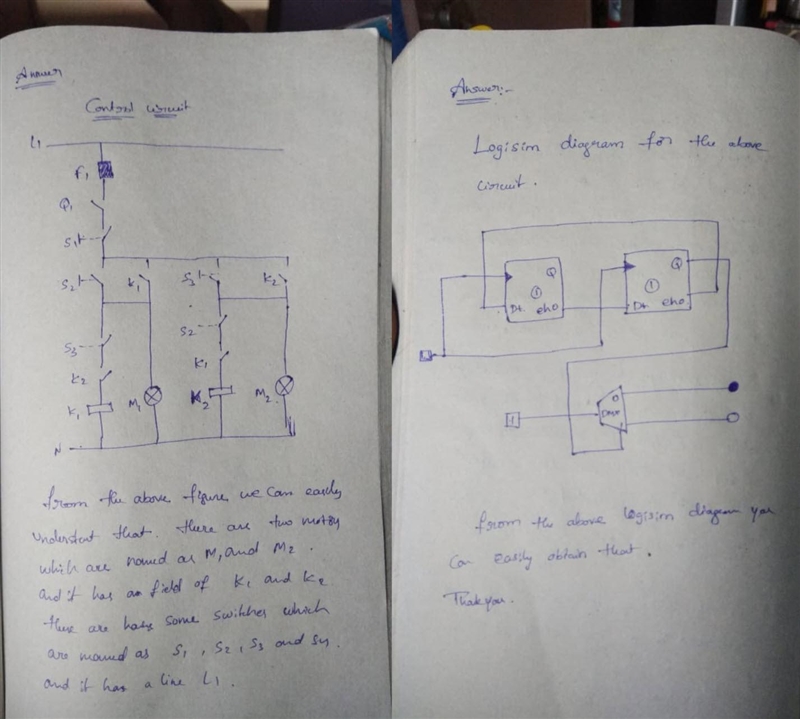 Answer
Control circuit
L1
F1
Q1
S1
S2
K1
S3
K2
S3
S2
K2
K1
K1
M1
K2
M2
N
from the above figure we can easily
understant that. there are two
which are named as M1 and M2.
and it has field of K1 and K2
these are some switches which
are named as S1, S2, S3 and S4.
and it has a line L1.
Answer:-
Logisim diagram for the above
circuit.
Q
Q
1
1
1
0
from the above logisim diagram you
can easily obtain that.
Thank you.